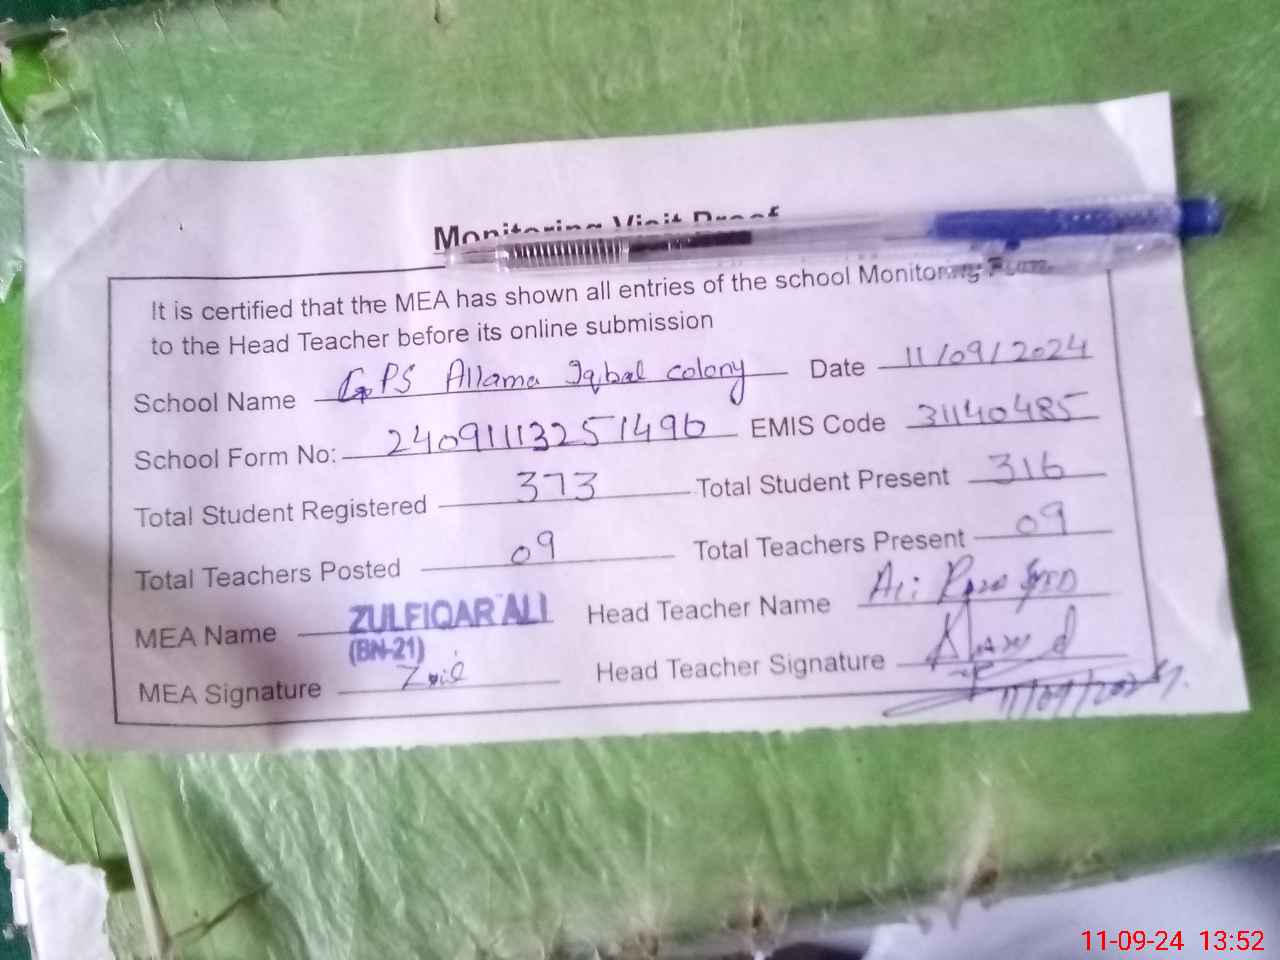 Monitoring Visit Proof
It is certified that the MEA has shown all entries of the school Monitoring Form
to the Head Teacher before its online submission
School Name GPS Allama Iqbal colony Date 11/09/2024
School Form No: 24091113251496 EMIS Code 31140485
Total Student Registered 373 Total Student Present 316
Total Teachers Posted 09 Total Teachers Present 09
MEA Name ZULFIQAR ALI Head Teacher Name Ali Raza
(BN-21)
MEA Signature Head Teacher Signature
11/09/2024.
11-09-24 13:52